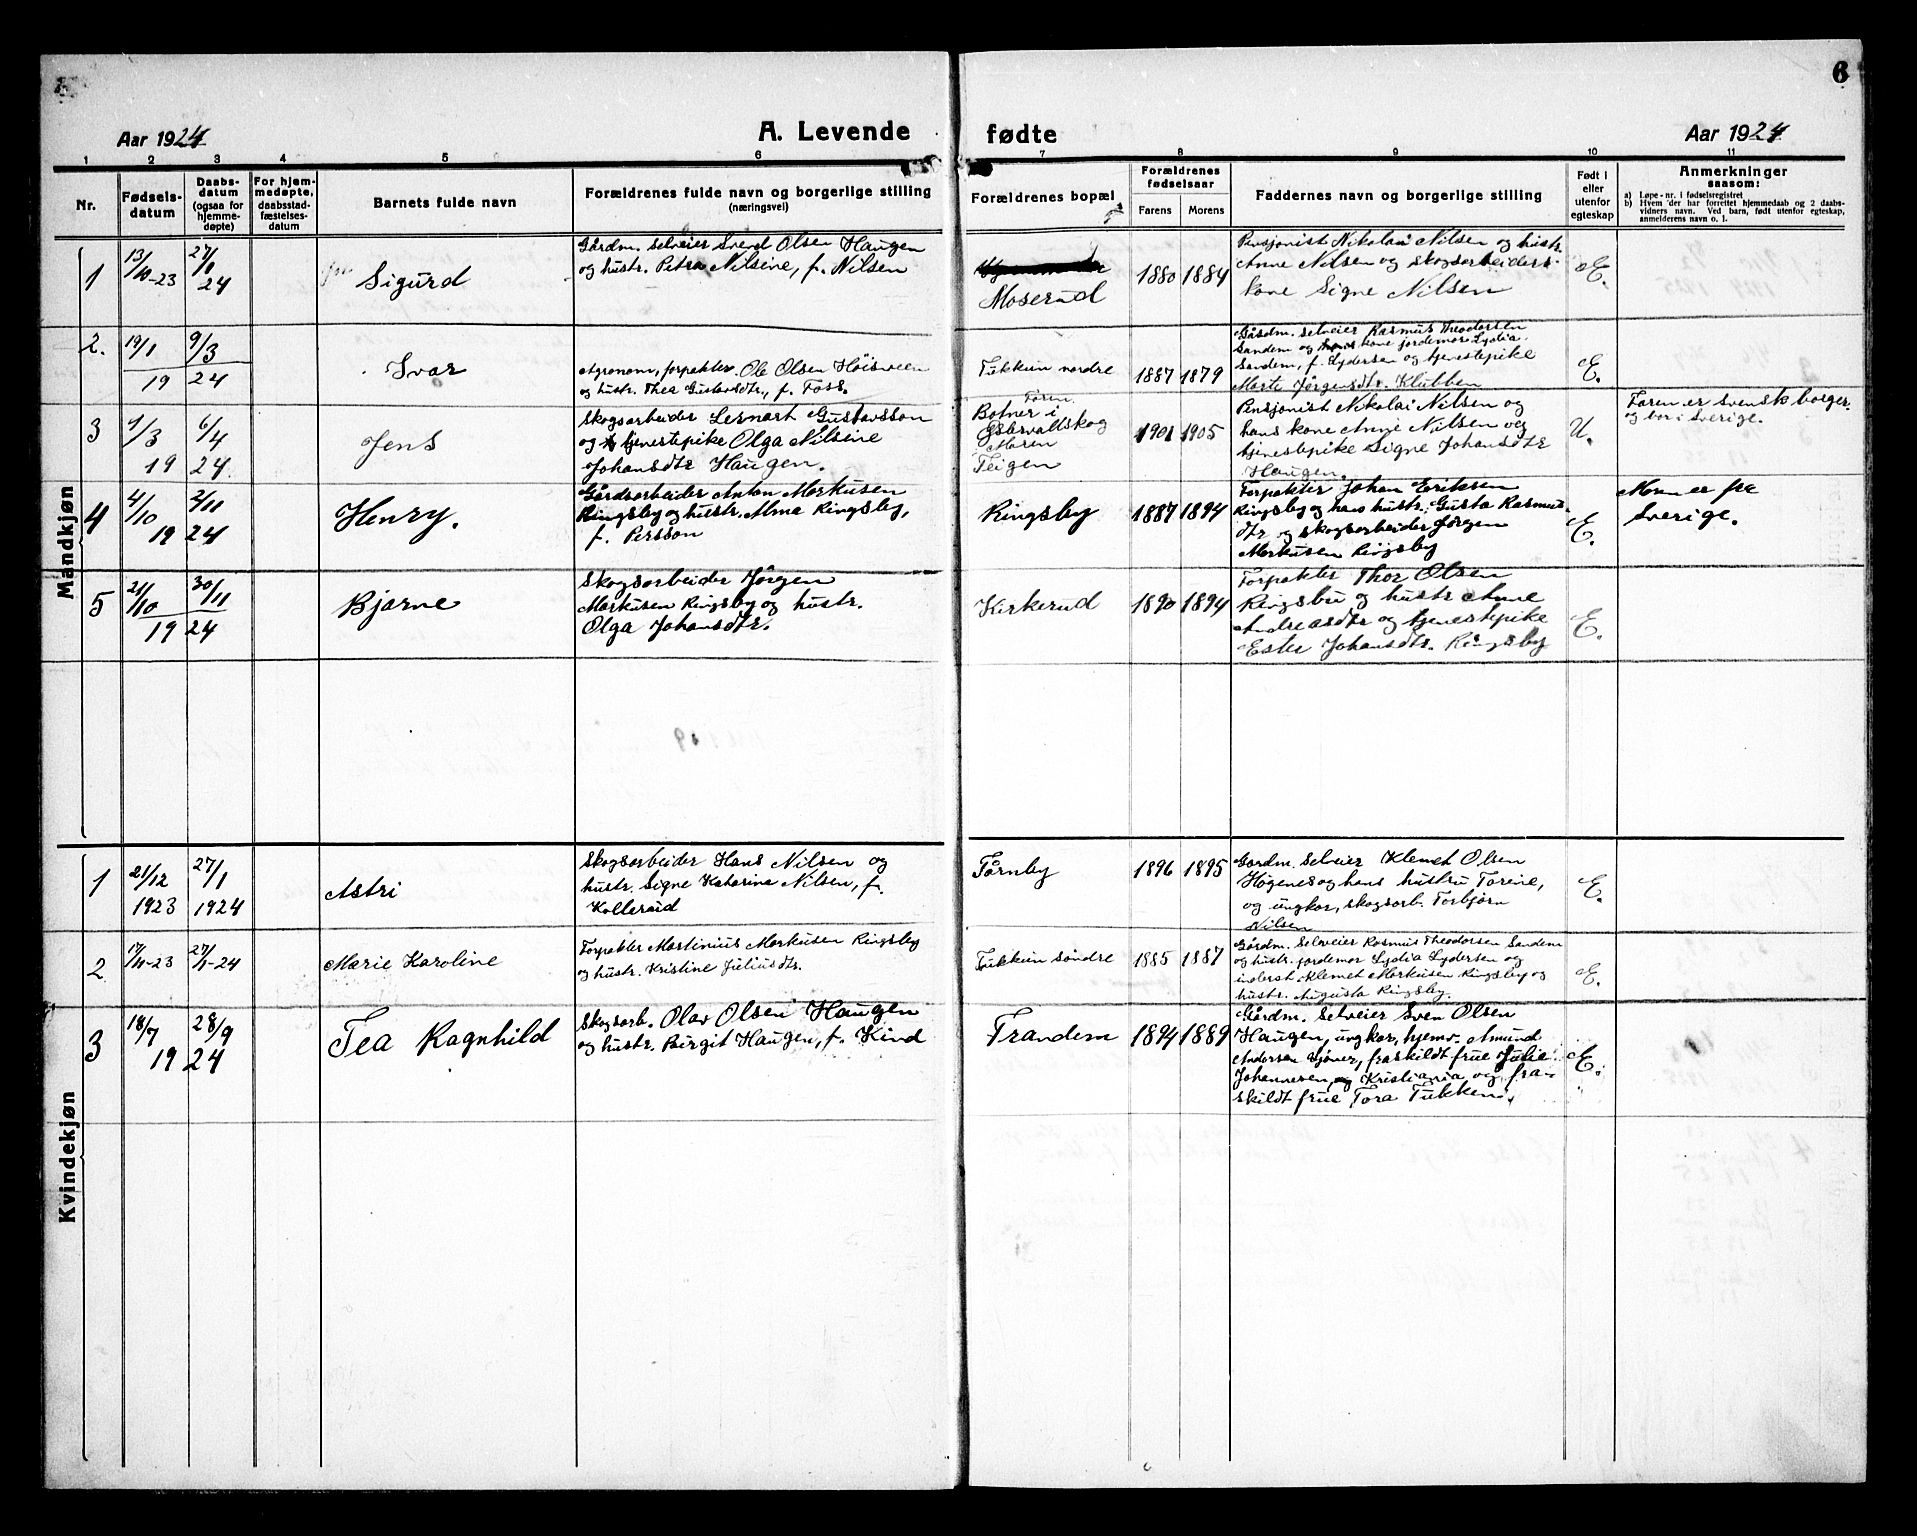 6
Aar 1924
A. Levende
fødte
Aar 1924
1 2 3 4 5 6 7 8 9 10 11
Nr.
Fødsels-
datum
Daabs-
datum
(ogsaa for
hjemme-
døpte)
For hjem-
medøpte,
daabsstad-
fæstelses-
datum
Barnets fulde navn
Forældrenes fulde navn og borgerlige stilling
(næringsvei)
Forældrenes bopæl
Forældrenes
fødselsaar
Farens
Morens
Faddernes navn og borgerlige stilling
Født i
eller
utenfor
egteskap
Anmerkninger
saasom:
a) Løpe-nr. i fødselsregistret
b) Hvem der har forrettet hjemmedaab og 2 daabs-
vidners navn. Ved barn, født utenfor egteskap,
anmelderens navn o. l.
Mandkjøn
1
13/10-23
27/1
24
Sigurd
Gårdm. selveier Svend Olsen Haugen
og hustr. Petra Nilsine, f. Nilsen
Moserud
1880 1884
Pensjonist Nikolai Nilsen og hustr.
Anne Nilsen og skogsarbeiders-
kone Signe Nilsen
E.
2.
19/1
19
9/3
24
Ivar
Agronom, forpakter Ole Olsen Høisveen
og hustr. Thea Gustavsdtr., f. Foss.
Tukkun nordre
1887 1879
Gårdm. selveier Rasmus Theodorsen
Sandem og hans kone jordemor Lydia
Sandem, f. Lydersen og tjenestepike
Marte Jørgensdtr. Klubben
E.
3
9/3
19
6/4
24.
Jens
Skogsarbeider Lernart Gustavsson
og tjenestepike Olga Nilsine
Johansdtr Haugen.
Faren
Botner i
Østervallskog
Moren
Teigen
1901 1905
Pensjonist Nikolai Nilsen og
hans kone Anne Nilsen og
tjenestepike Signe Johansdtr
Haugen.
U.
Faren er svensk borger
og bor i Sverige.
4
4/10
19
2/11
24
Henry.
Gårdsarbeider Anton Markusen
Ringsby og hustr. Alma Ringsby,
f. Persson
Ringsby
1887 1894
Forpakter Johan Eriksen
Ringsby og hans hustr. Gusta Rasmus-
dtr og skogsarbeider Jørgen
Markusen Ringsby
E.
Mor er fra
Sverige.
5
21/10
19
30/11
24
Bjarne
Skogsarbeider Jørgen
Markusen Ringsby og hustr.
Olga Johansdtr.
Kirkerud
1890 1894
Forpakter Thor Olsen
Ringsby og hustr Anne
Andreasdtr og tjenestepike
Ester Johansdtr. Ringsby
E.
Kvindekjøn
1
21/12
1923
27/1
1924
Astri
Skogsarbeider Hans Nilsen og
hustr. Signe Katarina Nilsen, f.
Kollerud
Tårnby
1896 1895
Gardm. Selveier Klemet Olsen
Høgenes og hans hustru Torine,
og ungkar, skogsarb. Torbjørn
Nilsen
E.
2
17/11-23
27/1-24
Marie Karoline
Forpakter Martinius Markusen Ringsby
og hustr. Kristine Juliusdtr.
Tukkun søndre
1885 1887
Gårdm. Selveier Rasmus Theodorsen Sandem
og hustr. jordemor Lydia Lydersen og
inderst Klemet Markusen Ringsby og
hustr. Augusta Ringsby.
E.
3
18/7
19
28/9
24
Tea Ragnhild
Skogsarb. Olav Olsen Haugen
og hustr. Birgit Haugen, f. Kind
Trandem
1894 1889
Gårdm. Selveier Sven Olsen
Haugen, ungkar, hjemv. Amund
Andersen Tjøner, fraskildt frue Julie
Johannesen, Kristiania og fra-
skildt frue Tora Tukken.
E.